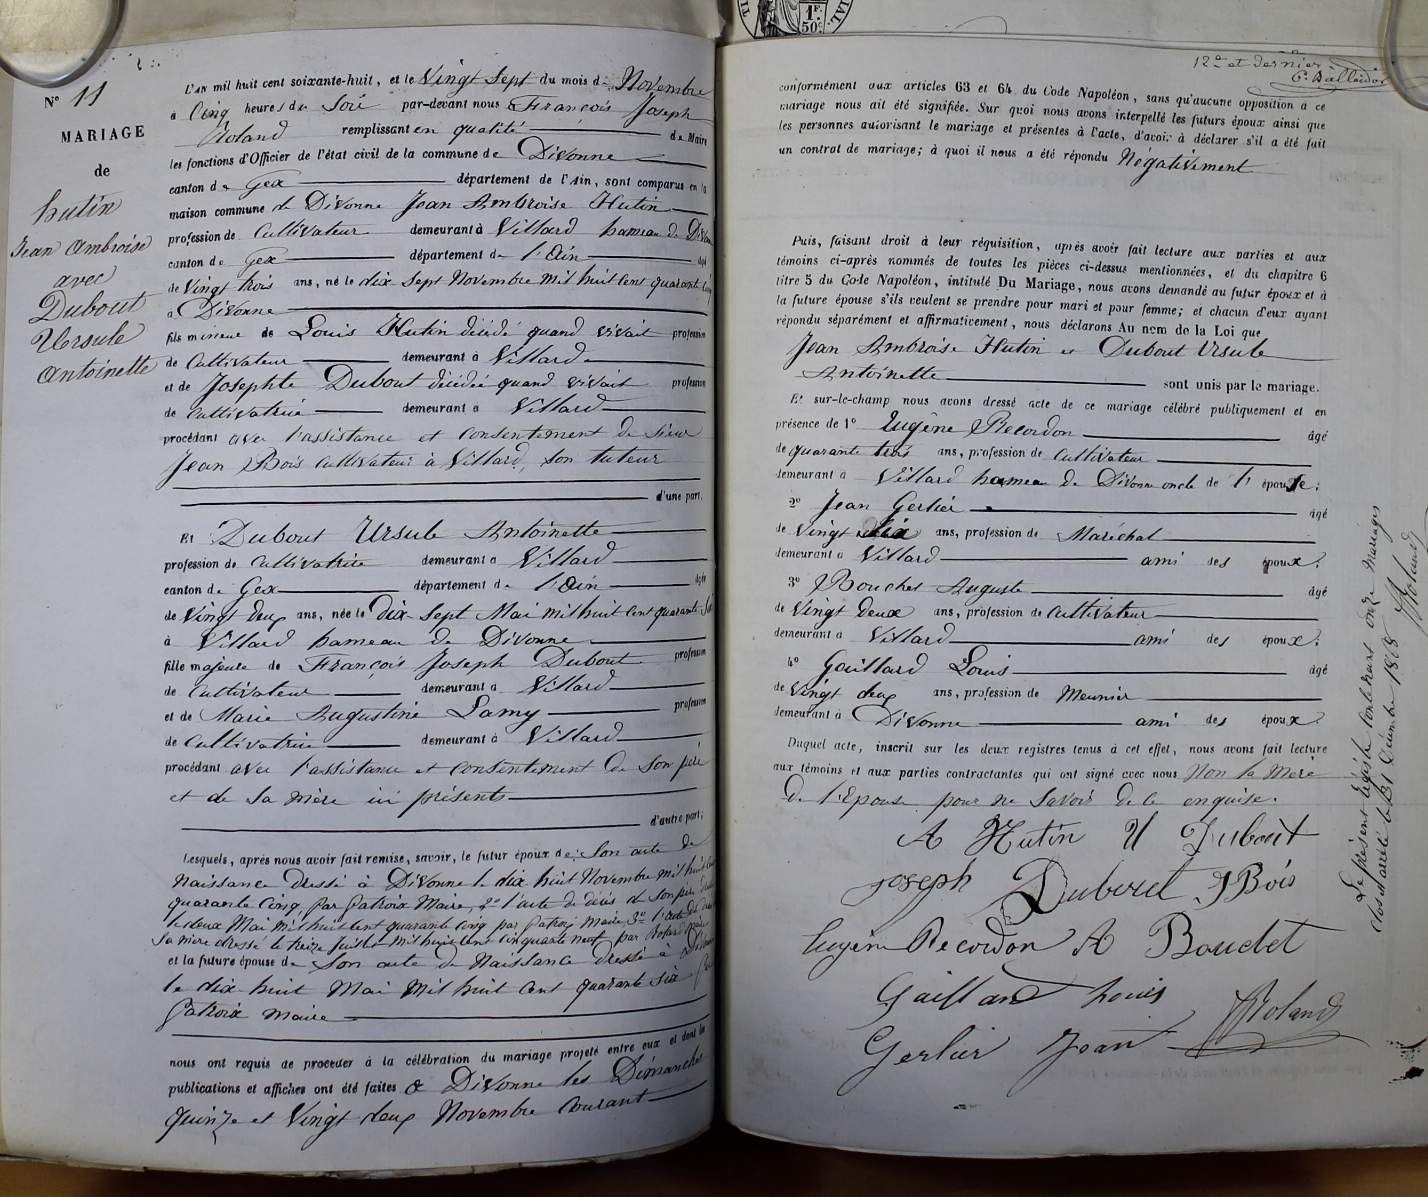 N° 11
MARIAGE
de
hutin
Jean Ambroise
avec
Dubout
Ursule
Antoinette
L'AN mil huit cent soixante-huit, et le Vingt Sept du mois de Novembre
a Cinq heures du Soir par-devant nous François Joseph
Roland remplissant en qualité de Maire
les fonctions d'Officier de l'état civil de la commune de Divonne
canton de Gex département de l'Ain, sont comparus en la
maison commune de Divonne Jean Ambroise Hutin
profession de Cultivateur demeurant à Villard hameau de Divonne
canton de Gex département de l'Ain âgé
de Vingt trois ans, né le dix Sept Novembre mil huit cent quarante cinq
a Divonne
fils mineur de Louis Hutin décédé quand vivait profession
de Cultivateur demeurant à Villard
et de Josephte Dubout décédée quand vivait profession
de Cultivatrice demeurant a Villard
procédant avec l'assistance et consentement de sieur
Jean Bois Cultivateur à Villard, son tuteur
d'une part,
Et Dubout Ursule Antoinette
profession de Cultivatrice demeurant a Villard
canton de Gex département de l'Ain âgée
de Vingt deux ans, née le Dix-Sept Mai mil huit cent quarante Six
à Villard hameau de Divonne
fille majeure de François Joseph Dubout profession
de Cultivateur demeurant a Villard
et de Marie Augustine Lamy profession
de Cultivatrice demeurant à Villard
procédant avec l'assistance et consentement de son père
et de Sa mère ici présents
d'autre part;
Lesquels, après nous avoir fait remise, savoir, le futur époux de: Son acte de
Naissance dressé à Divonne le dix huit Novembre mil huit cent
quarante Cinq, par Gatroix Maire, 2° l'acte de décès de son père
le deux Mai mil huit cent quarante cinq par Gatroix Maire, 3° l'acte de
Sa mère dressé le treize Juillet mil huit cent cinquante neuf par Roland
et la future épouse de Son acte de Naissance dressé à Divonne
le dix-huit Mai Mil huit Cent quarante six par
Gatroix maire
nous ont requis de procéder à la célébration du mariage projeté entre eux et dont les
publications et affiches ont été faites à Divonne les Dimanches
quinze et Vingt deux Novembre Courant
12e et dernier
conformément aux articles 63 et 64 du Code Napoléon, sans qu'aucune opposition a ce
mariage nous ait été signifiée. Sur quoi nous avons interpellé les futurs époux ainsi que
les personnes autorisant le mariage et présentes à l'acte, d'avoir à déclarer s'il a été fait
un contrat de mariage; à quoi il nous a été répondu Négativement
Puis, faisant droit à leur réquisition, après avoir fait lecture aux parties et aux
témoins ci-après nommés de toutes les pièces ci-dessus mentionnées, et du chapitre 6
titre 5 du Code Napoléon, intitulé Du Mariage, nous avons demandé au futur époux et à
la future épouse s'ils veulent se prendre pour mari et pour femme; et chacun d'eux ayant
répondu séparément et affirmativement, nous déclarons Au nom de la Loi que
Jean Ambroise Hutin et Dubout Ursule
Antoinette sont unis par le mariage.
Et sur-le-champ nous avons dressé acte de ce mariage célébré publiquement et en
présence de 1° Eugène Recordon âgé
de quarante trois ans, profession de Cultivateur
demeurant à Villard hameau de Divonne oncle de l'épouse;
2° Jean Gerlier âgé
de Vingt ans, profession de Maréchal
demeurant a Villard ami des époux;
3° Bouchet Auguste âgé
de Vingt Deux ans, profession de Cultivateur
demeurant à Villard ami des époux;
4° Gaillard Louis âgé
de Vingt deux ans, profession de Meunier
demeurant à Divonne ami des époux.
Duquel acte, inscrit sur les deux registres tenus à cet effet, nous avons fait lecture
aux témoins et aux parties contractantes qui ont signé avec nous Non la Mère
de l'Epouse pour ne Savoir de ce enquise.
A Hutin U Dubout
Joseph Dubout J Bois
Eugène Recordon A Bouchet
Gaillard Louis
Gerlier Jean JRoland
Le présent registre contenant onze mariages
clos et arrêté le 31 Décembre 1868
JRoland